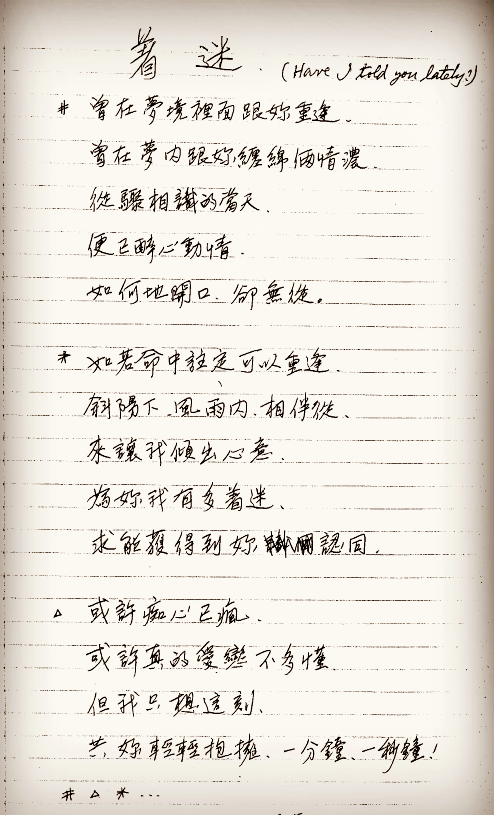 着迷. (Have I told you lately?)
# 曾在夢境裡面跟妳重逢.
曾在夢內跟妳纏綿個情濃.
從驟相識的當天.
便已醉心動情.
如何地開口.卻無從。
* 如若命中註定可以重逢.
斜陽下.風雨內.相伴從.
來讓我傾出心意.
為妳我有多着迷.
求能獲得到妳認同.
△ 或許痴心已瘋.
或許真的愛戀不多懂
但我只想這刻.
共妳輕輕抱擁.一分鐘.一秒鐘!
# △ * ...